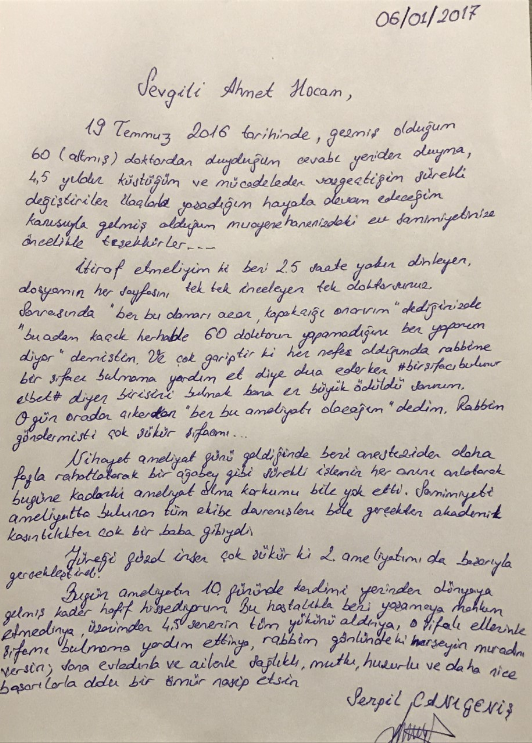 06/01/2017
Sevgili Ahmet Hocam,
19 Temmuz 2016 tarihinde, gezmiş olduğum
60 (altmış) doktordan duyduğum cevabı yeniden duyma,
4,5 yıldır küstüğüm ve mücadeleden vazgeçtiğim sürekli
değiştirilen ilaçlarla yaşadığım hayata devam edeceğim
kanısıyla gelmiş olduğum muayenehanenizdeki ev samimiyetinize
öncelikle teşekkürler...
İtiraf etmeliyim ki beni 2.5 saate yakın dinleyen,
dosyamın her sayfasını tek tek inceleyen tek doktorsunuz.
Sonrasında "ben bu damarı açar, kapakçığı onarırım" dediğinizde
"bu adam kaçık herhalde 60 doktorun yapamadığını ben yaparım
diyor" demiştim. Ve çok gariptir ki her nefes aldığımda rabbime
bir şifacı bulmama yardım et diye dua ederken #birşifacıbulunur
elbet# diyen birisini bulmak bana en büyük ödüldü sanırım.
O gün oradan çıkarken "ben bu ameliyatı olacağım" dedim. Rabbim
göndermişti çok şükür şifacımı...
Nihayet ameliyat günü geldiğinde beni anesteziden daha
fazla rahatlatarak bir ağabey gibi sürekli işlemin her anını anlatarak
bugüne kadarki ameliyat olma korkumu bile yok etti. Samimiyeti
ameliyatta bulunan tüm ekibe davranışları bile gerçekten akademik
kasıntılıkten çok bir baba gibiydi.
Yüreği güzel insan çok şükür ki 2. ameliyatımı da başarıyla
gerçekleştirdi.
Bugün ameliyatın 10. gününde kendimi yeniden dünyaya
gelmiş kadar hafif hissediyorum. Bu hastalıkla beni yaşamaya mahkum
etmedin ya, üzerimden 4,5 senenin tüm yükünü aldın ya, o şifalı ellerinle
şifamı bulmama yardım ettin ya, rabbim gönlündeki herşeyin muradını
versin; sana evladınla ve ailenle sağlıklı, mutlu, huzurlu ve daha nice
başarılarla dolu bir ömür nasip etsin
Serpil CANIGENİŞ